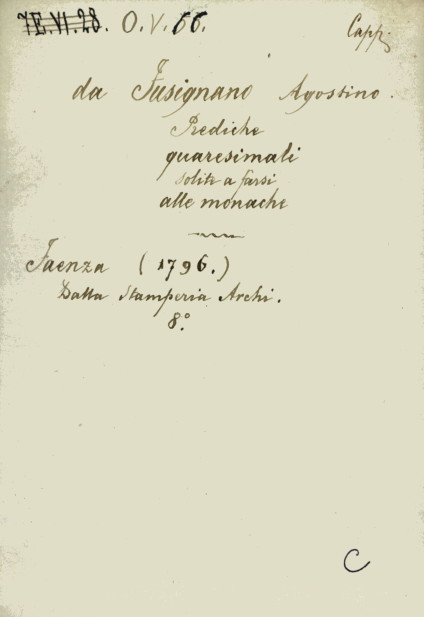 7E.VI.28. O.V.66. Capp.
da Fusignano Agostino.
Prediche
quaresimali
solite a farsi
alle monache
Faenza (1796.)
Dalla Stamperia Archi.
8º.
C